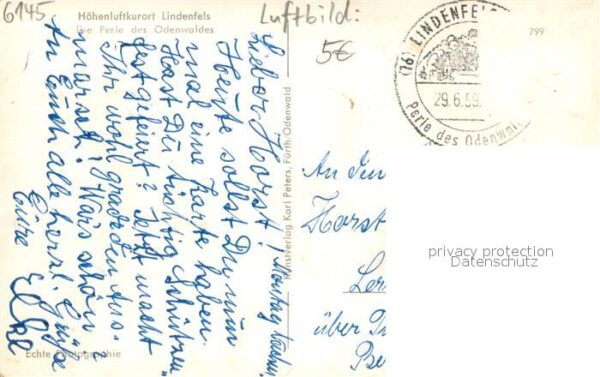 6145
Höhenluftkurort Lindenfels
Die Perle des Odenwaldes
Luftbild:
5€
799
(16) LINDENFELS
29.6.59.
Perle des Odenwal
Lieber Horst! Montag
Heute sollst Du nun
mal eine Karte haben.
Hast Du tüchtig Schützen
fest gefeiert? Jetzt macht
Ihr wohl grade den Aus-
marsch! Wars schön?
An Euch alle herzl. Grüße
Eure Elke
Kunstverlag Karl Peters, Fürth/Odenwald
An den
Horst
über
Echte Photographie
privacy protection
Datenschutz